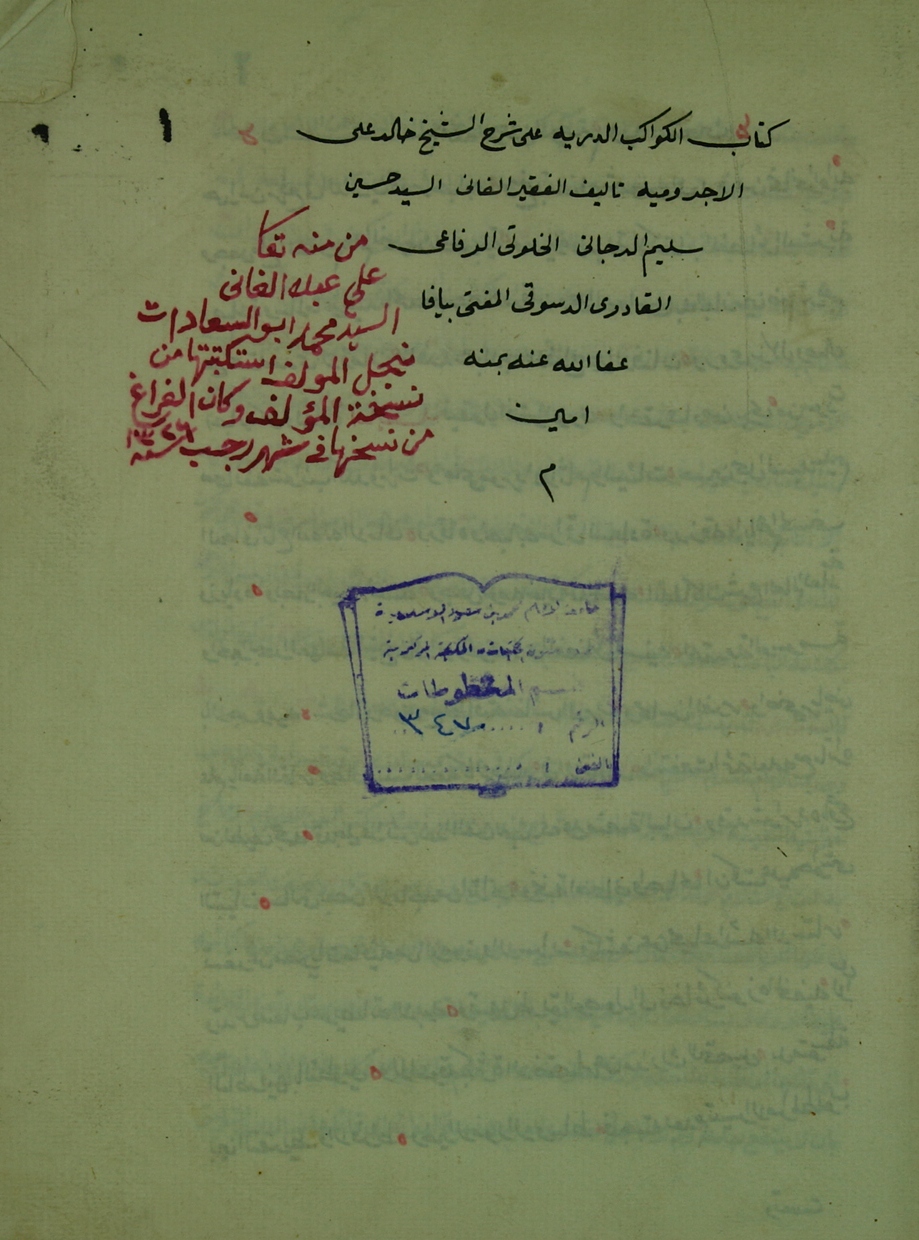 ١
كتاب الكواكب الدريه على شرح الشيخ خالد على
الاجروميه تاليف الفقير الفانى السيد حسين
سليم الدجانى الخلوتى الرفاعى
القادرى الدسوقى المفتى بيافا
عفا الله عنه بمنه
امين
م
من منه تعا
على عبده الفانى
السيد محمد ابو السعادات
نجل المولف استكتبتها من
نسخة المؤلف وكان الفراغ
من نسخها فى شهر رجب سنة
جامعة الامام محمد بن سعود الاسلامية
المكتبة المركزية
قسم المخطوطات
الرقم ٣٤٧٠
الفن